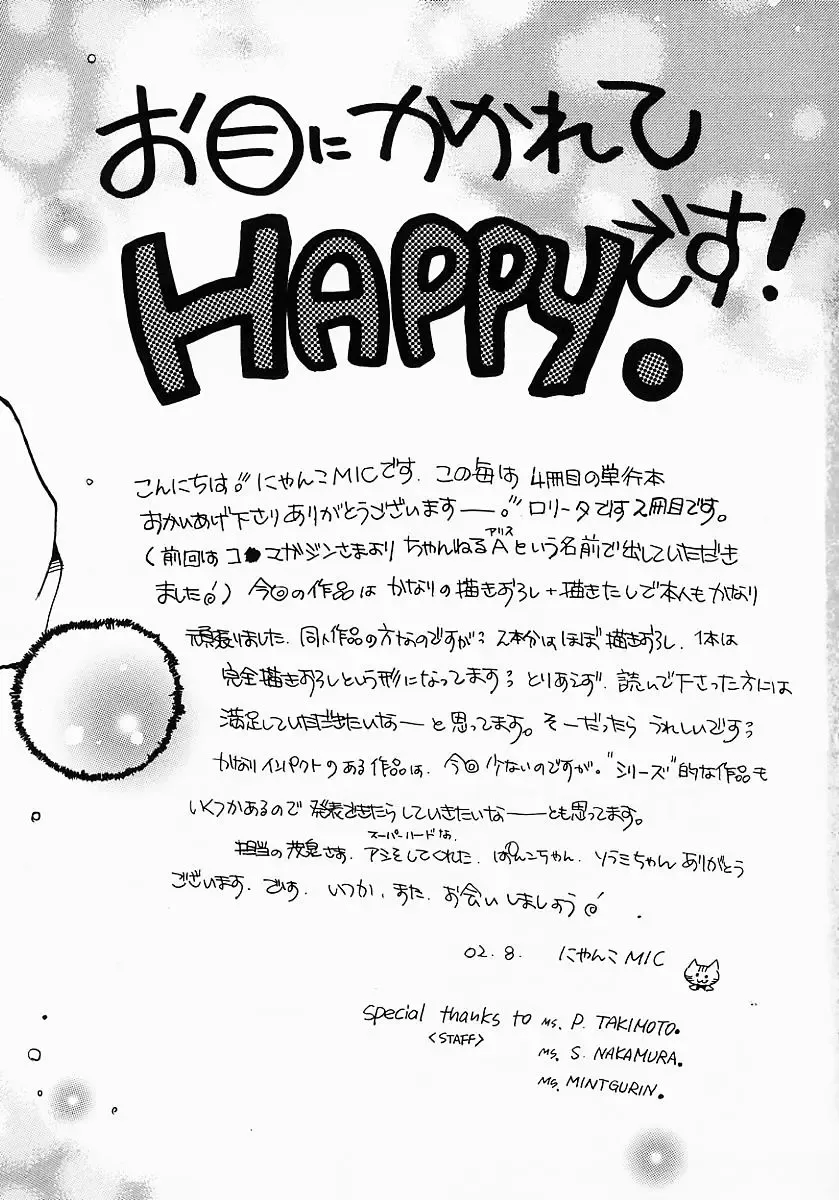 お目にかかれて
HAPPYです!
こんにちは。にゃんこMICです. この毎は 4冊目の単行本
おかいあげ下さりありがとうございますー。ロリータです2冊目です。
(前回は コ●マガジンさまより ちゃんねるAという名前で出していただき
アリス
ました!) 今回の作品は かなりの描きおろし+描きたしで本人もかなり
頑張りました. 同人作品の方なのですが; 2本分はほぼ描きおろし, 1本は
完全描きおろしという形になってます; とりあえず. 読んで下さった方には
満足していただきたいなーと思ってます。そーだったら うれしいです;
かなりインパクトのある作品は、今回少ないのですが。"シリーズ"的な作品も
いくつかあるので 発表できたらしていきたいなーーとも思ってます。
スーパーハードな.
担当の さま. アシをしてくれた. ぱんこちゃん. ソラミちゃん ありがとう
ございます. です. いつか. また. お会いしましょう!
02.8. にゃんこMIC
special thanks to Ms. P. TAKIMOTO.
<STAFF>
Ms. S. NAKAMURA.
Ms. MINTGURIN.